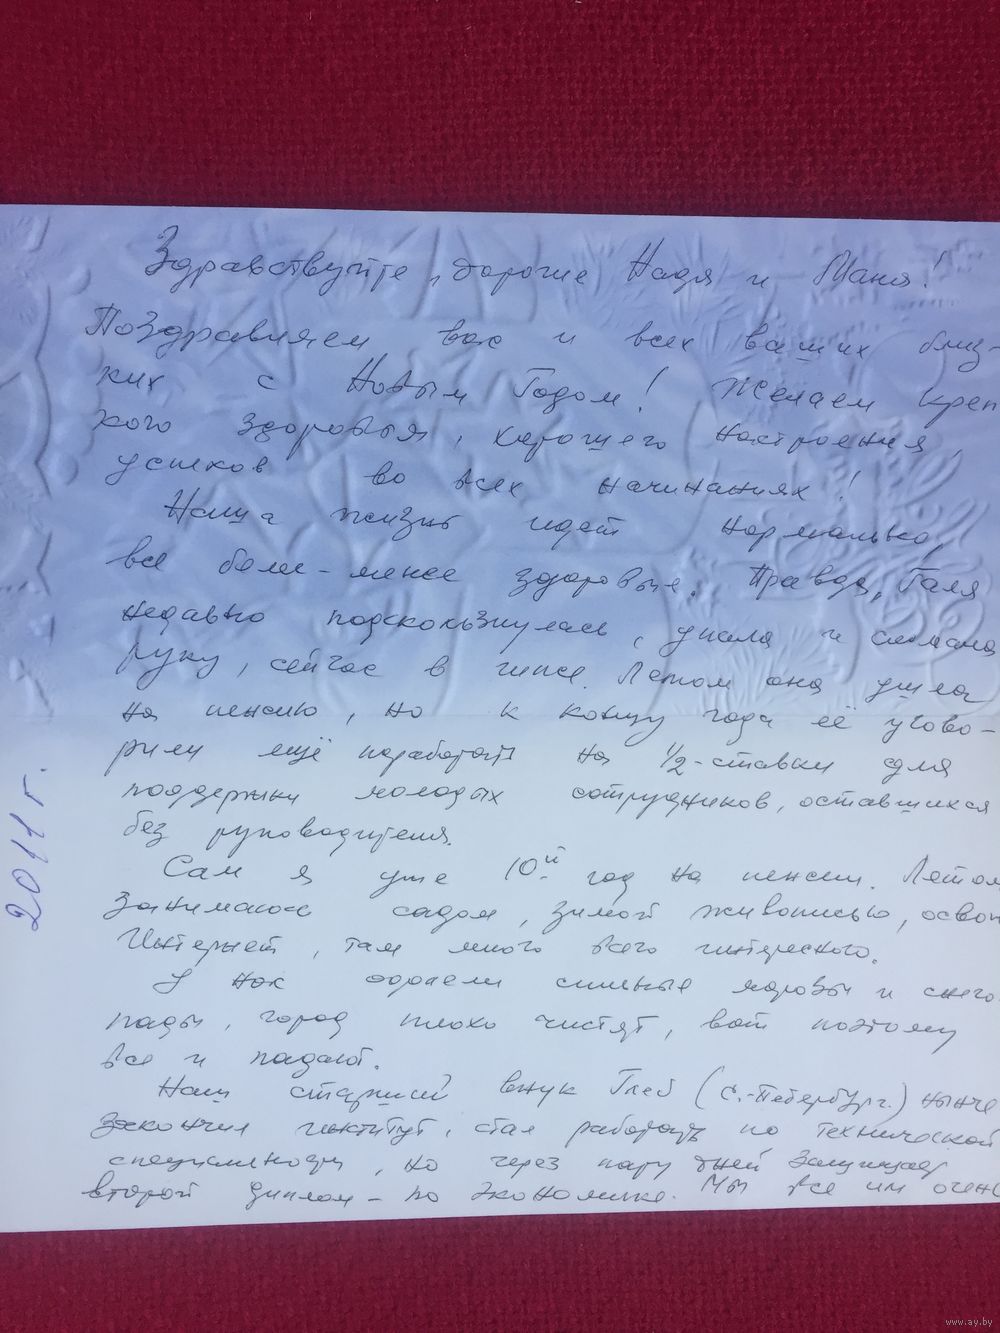 Здравствуйте, дорогие Надя и Маня!
Поздравляем вас и всех ваших близ-
ких с Новым Годом! Желаем креп
кого здоровья, хорошего настроения,
успехов во всех начинаниях!
Наша жизнь идет нормально,
все более-менее здоровые. Правда, Галя
недавно подскользнулась, упала и сломала
руку, сейчас в гипсе. Летом она ушла
на пенсию, но к концу года её угово-
рили ещё поработать на 1/2-ставки для
поддержки молодых сотрудников, оставшихся
без руководителя.
Сам я уже 10й год на пенсии. Летом
занимаюсь садом, зимой живописью, освои
Интернет, там много всего интересного.
У нас одолели сильные морозы и снего
пады, город плохо чистят, вот поэтому
все и падают.
Наш старший внук Глеб (С.-Петербург.) нынче
закончил институт, стал работать по технической
специальности, но через пару дней защищает
второй диплом - по экономике. Мы все им очень
2011 г.
www.ay.by